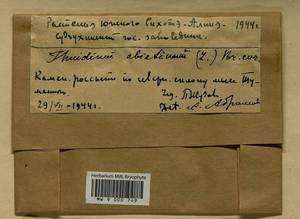 Растения южного Сихотэ-Алиня. 1944 г.
Судзухинский гос. заповедник.
Thuidium abietinum (L.) Br. eur.
Камен. россыпи по северн. склону
29/VII-1944 г.
Det. А. Абрамова
Herbarium MW, Bryophyta
MW 9 000 749